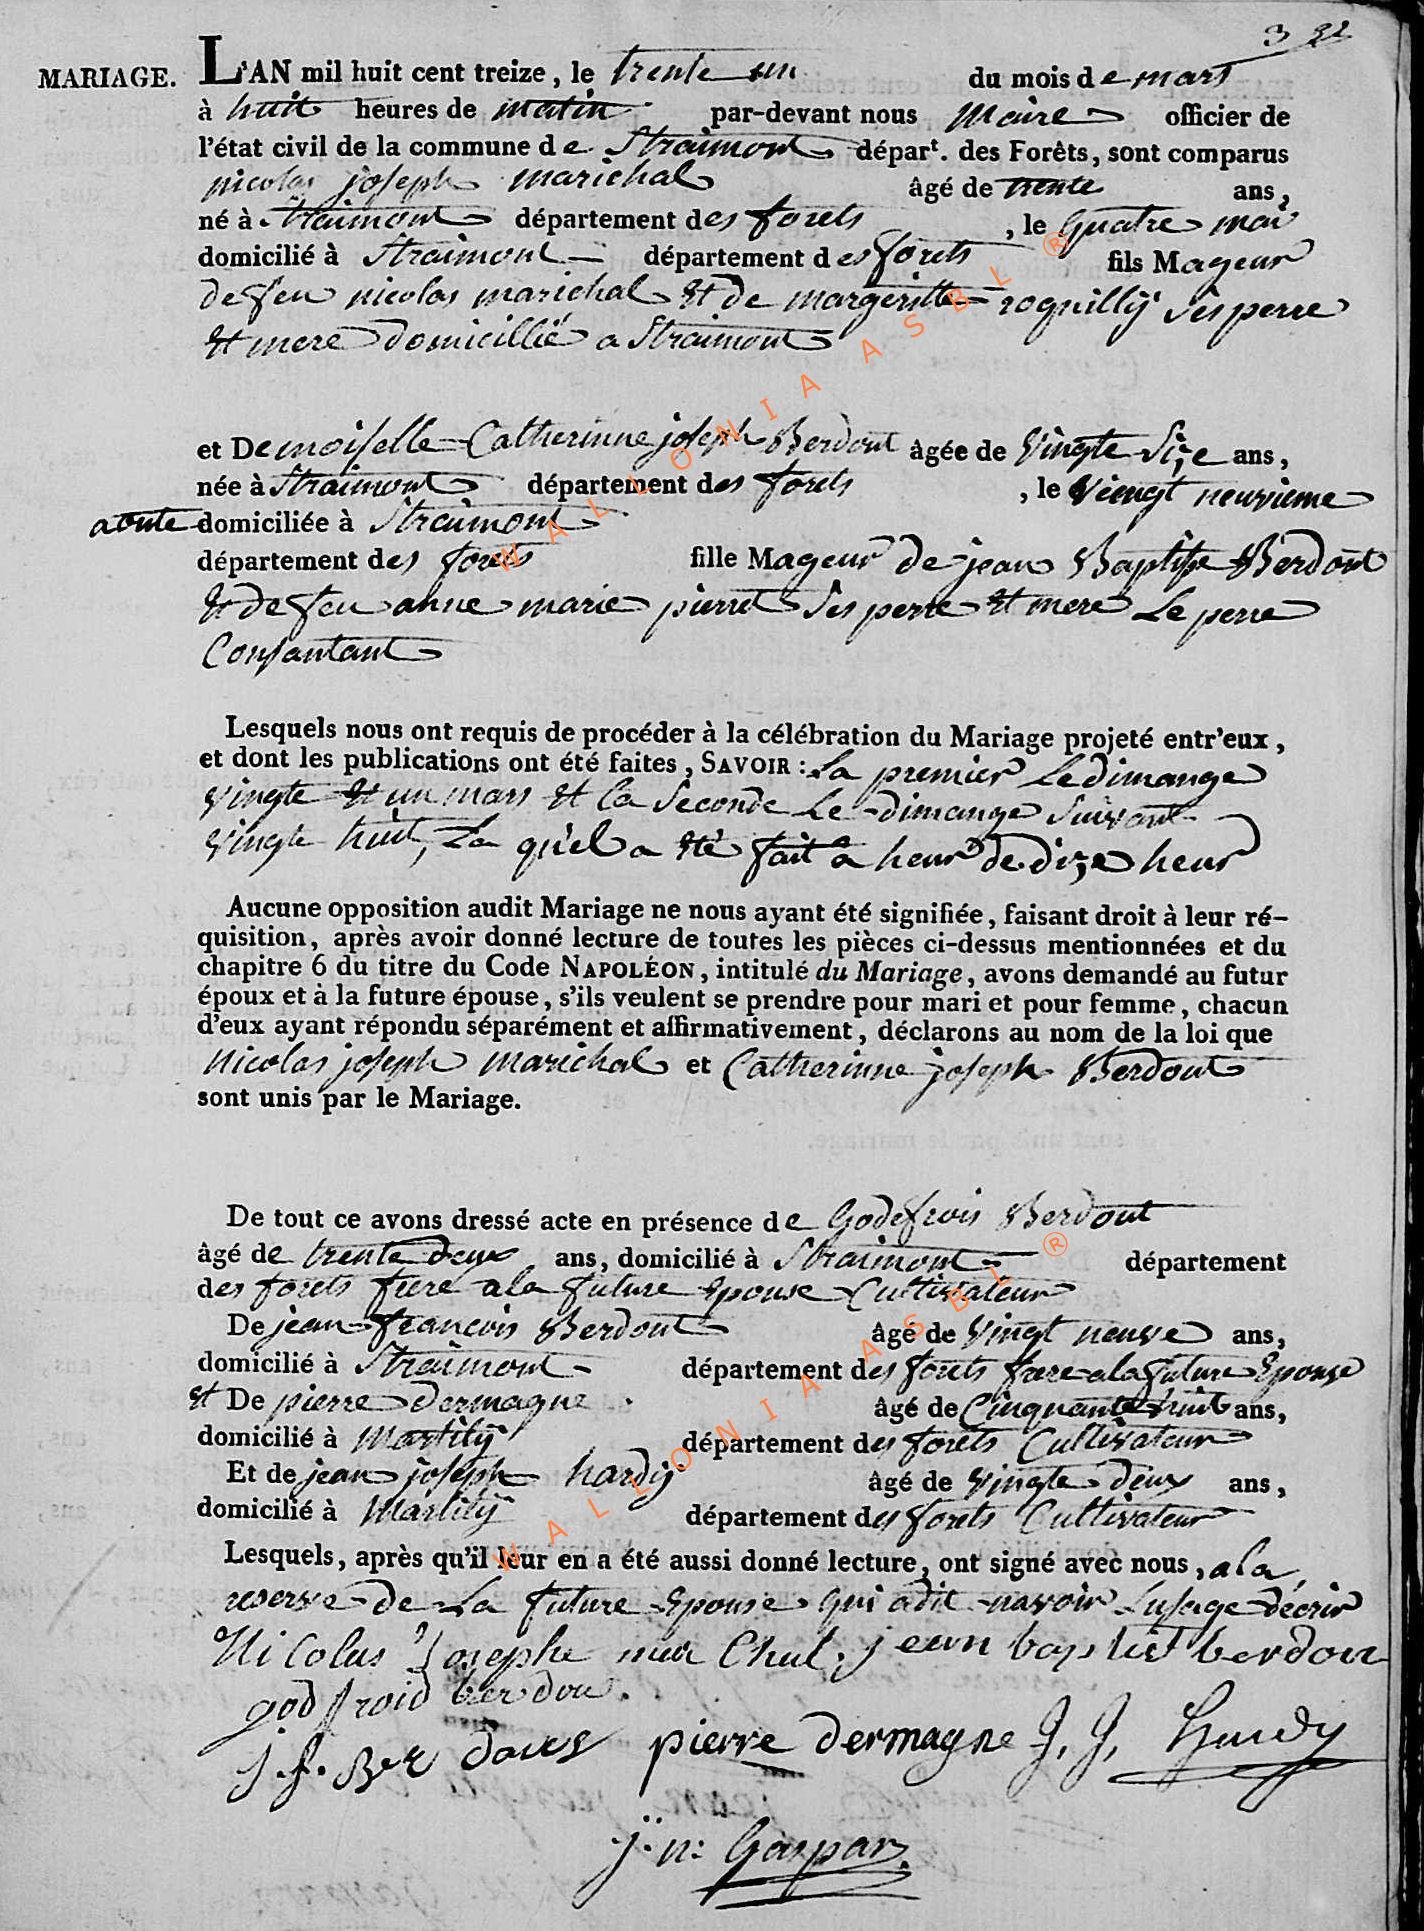 3 32
MARIAGE. L'AN mil huit cent treize, le trente un du mois de mars
à huit heures de matin par-devant nous Maire officier de
l'état civil de la commune de Straimont départ. des Forêts, sont comparus
nicolas joseph marichal âgé de trente ans,
né à Straimont département des forets, le quatre mai
domicilié à Straimont département des forets fils Mageur
de feu nicolas marichal et de margeritte roquilly ses perre
et mere domicillié a Straimont
et Demoiselle Catherinne joseph Berdout âgée de vingte size ans,
née à Straimont département des forets, le viengt neuvieme
aoute domiciliée à Straimont
département des forets fille Mageur de jean Baptiste Berdout
et de feu anne marie pierret ses perre et mere Le perre
Consantant
Lesquels nous ont requis de procéder à la célébration du Mariage projeté entr'eux,
et dont les publications ont été faites, SAVOIR : La premier Le dimange
vingte et un mars et la seconde Le dimange suivant
vingte huit, La quel a été fait a heur de dize heur
Aucune opposition audit Mariage ne nous ayant été signifiée, faisant droit à leur ré-
quisition, après avoir donné lecture de toutes les pièces ci-dessus mentionnées et du
chapitre 6 du titre du Code NAPOLÉON, intitulé du Mariage, avons demandé au futur
époux et à la future épouse, s'ils veulent se prendre pour mari et pour femme, chacun
d'eux ayant répondu séparément et affirmativement, déclarons au nom de la loi que
Nicolas joseph marichal et Catherinne joseph Berdout
sont unis par le Mariage.
De tout ce avons dressé acte en présence de Godefrois Berdout
âgé de trente deux ans, domicilié à Straimont département
des forets frere a la future Epouse Cultivateur
De jean francois Berdout âgé de vingt neuve ans,
domicilié à Straimont département des forets frere a la future Epouse
et De pierre dermagne âgé de Cinquante huit ans,
domicilié à Martilÿ département des forets Cultivateur
Et de jean joseph hardy âgé de vingte deux ans,
domicilié à Martilÿ département des forets Cultivateur
Lesquels, après qu'il leur en a été aussi donné lecture, ont signé avec nous, a la
reserve de La future Epouse qui a dit navoir Lusage décrir
Nicolas Josephe mar Chal. jean baptist berdou
godfroid berdou.
J. f. Ber doues pierre dermagne J. J. Hardy
j. n: Gaspar
WALLONIA ASBL ®
WALLONIA ASBL ®